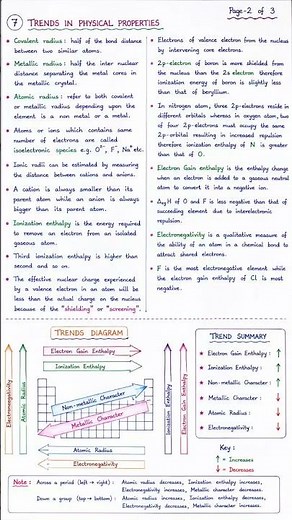 Page-2 of 3
7 TRENDS IN PHYSICAL PROPERTIES
Covalent radius: half of the bond distance
between two similar atoms.
Metallic radius: half the inter nuclear
distance separating the metal cores in
the metallic crystal.
Atomic radius: refer to both covalent
or metallic radius depending upon
the element is a non metal or a metal.
Atoms or ions which contains same
number of electrons are called
isoelectronic species e.g. O²⁻, F⁻, Na⁺ etc.
Ionic radii can be estimated by measuring
the distance between cations and anions.
A cation is always smaller than its
parent atom while an anion is always
bigger than its parent atom.
Ionization enthalpy is the energy required
to remove an electron from an isolated
gaseous atom.
Third ionization enthalpy is higher than
second and so on.
The effective nuclear charge experienced
by a valence electron in an atom will be
less than the actual charge on the nucleus
because of the "shielding" or "screening".
Electrons of valence electron from the nucleus
by intervening core electrons.
2p-electron of boron is more shielded from
the nucleus than the 2s electron therefore
ionization energy of boron is slightly less
than that of beryllium.
In nitrogen atom, three 2p-electrons reside in
different orbitals whereas in oxygen atom, two
of four 2p-electrons must occupy the same
2p-orbital resulting in increased repulsion
therefore ionization enthalpy of N is greater
than that of O.
Electron Gain Enthalpy is the enthalpy change
when an electron is added to a gaseous neutral
atom to convert it into a negative ion.
H of O and F is less negative than that of
succeeding element due to interelectronic
repulsion.
Electronegativity is a qualitative measure of
the ability of an atom in a chemical bond to
attract shared electrons.
F is the most electronegative element while
the electron gain enthalpy of Cl is most
negative.
TRENDS DIAGRAM
Electron Gain Enthalpy
Ionization Enthalpy
Electronegativity
Atomic Radius
Non-metallic Character
Metallic Character
Ionization Enthalpy
Electron Gain Enthalpy
Atomic Radius
Electronegativity
TREND SUMMARY
Electron Gain Enthalpy : ↑
Ionization Enthalpy : ↑
Non-metallic Character : ↑
Metallic Character : ↓
Atomic Radius : ↓
Electronegativity : ↓
Key :
↑ = Increases
↓ = Decreases
Note : Across a period (left → right) : Atomic radius decreases, Ionization enthalpy increases,
Electronegativity increases, Metallic character decreases.
Down a group (top → bottom) : Atomic radius increases, Ionization enthalpy decreases,
Electronegativity decreases, Metallic character increases.